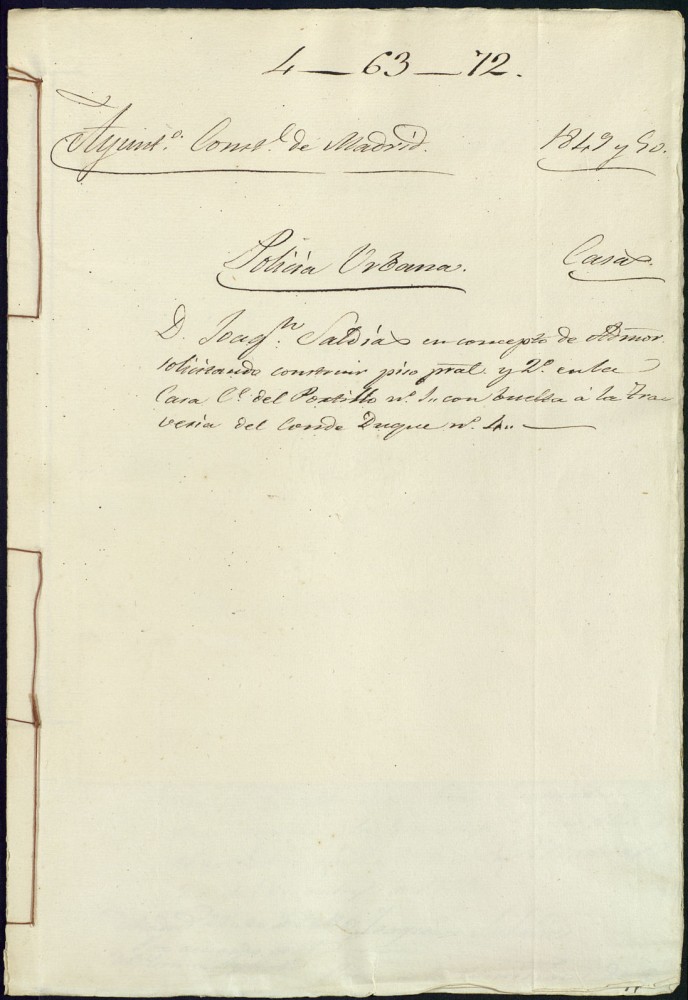 4—63—72.
Ayunt.º Const.l de Madrid. 1849 y 50.
Policia Urbana. Casas.
D. Joaq.n Saldías en concepto de Admor.
solicitando construir piso pral. y 2º en la
Casa C.e del Portillo nº 1., con buelta á la Tra-
vesia del Conde Duque nº 4., —